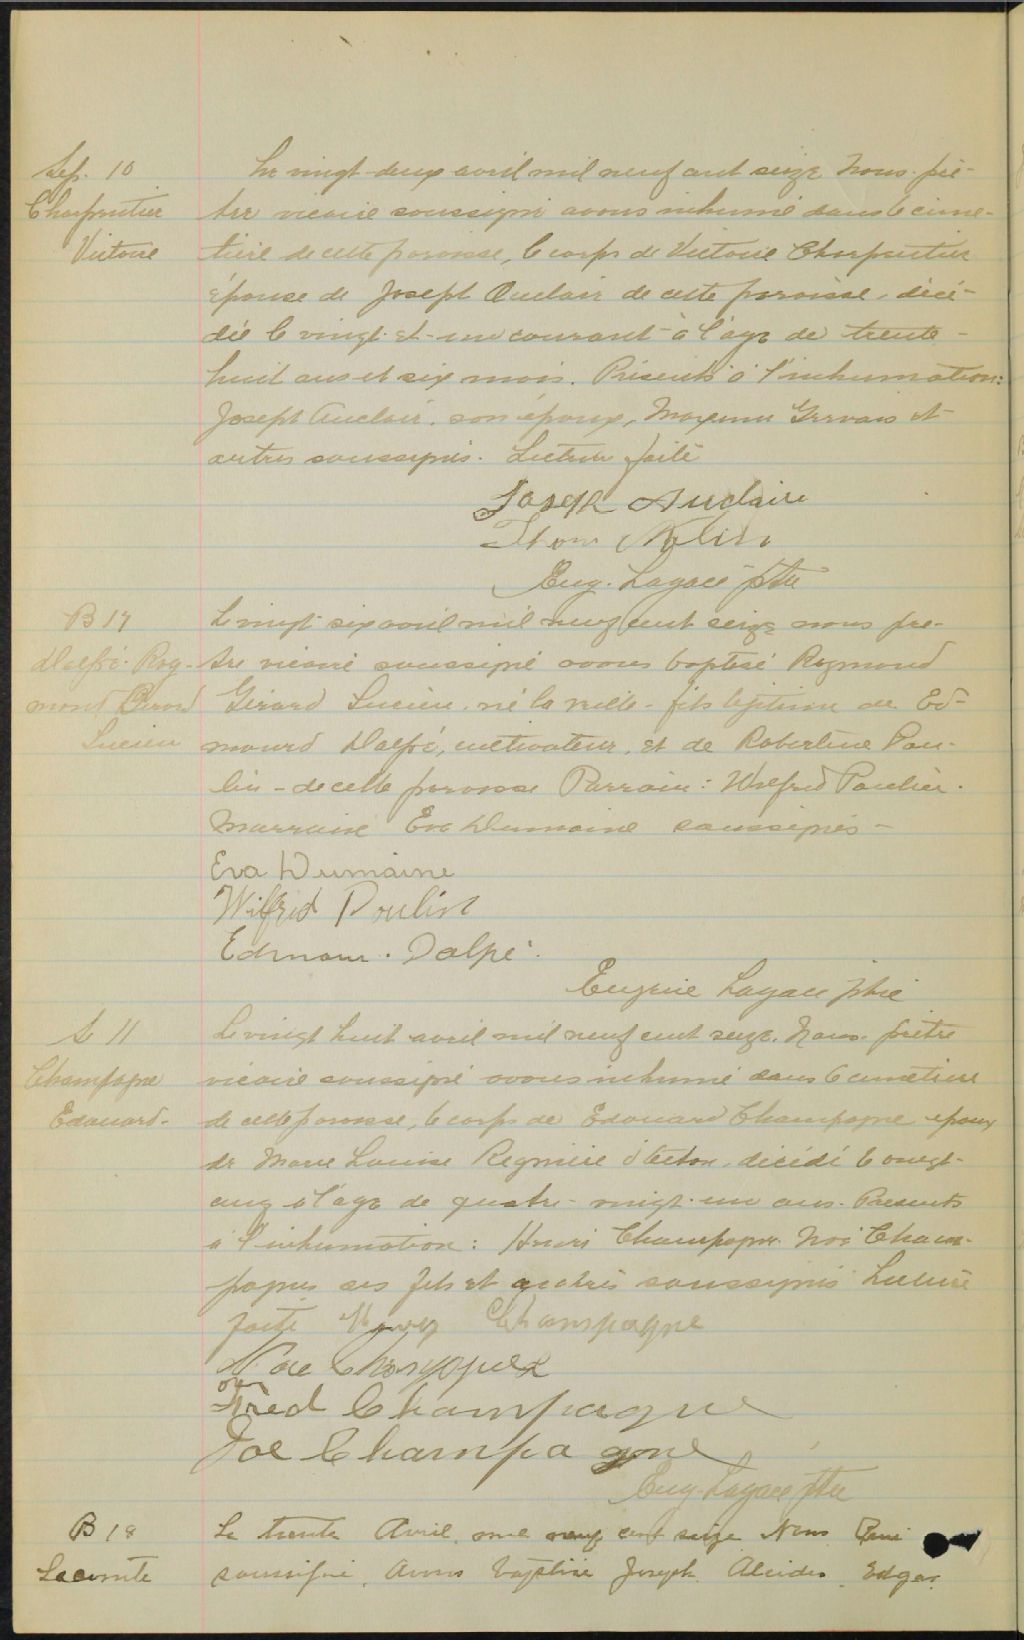 Sep. 10
Charpentier
Victoire
Le vingt-deux avril mil neuf cent seize Nous prê-
tre vicaire soussigné avons inhumé dans le cime-
tière de cette paroisse, le corps de Victoire Charpentier
épouse de Joseph Auclair de cette paroisse, décé-
dée le vingt-et-un courant à l'age de trente-
huit ans et six mois. Présents à l'inhumation:
Joseph Auclair, son époux, Gervais et
autres soussignés. Lecture faite
Joseph Auclaire
Eug. Lagacé ptre
B 17
Dalpé Ray-
mond Gerard
Lucien
Le vingt six avril mil neuf cent seize nous prê-
tre vicaire soussigné avons baptisé Raymond
Gérard Lucien, né la veille - fils légitime de Ed-
mourd Dalpé, cultivateur, et de Robertine Pou-
lin - de cette paroisse Parrain: Wilfred Poulin.
Marraine Eva Dumaine soussignés -
Eva Dumaine
Wilfrid Poulin
Edmour. Dalpé.
Eugène Lagacé ptre
S 11
Champagne
Edouard.
Le vingt huit avril mil neuf cent seize, Nous, prêtre
vicaire soussigné avons inhumé dans le cimetière
de cette paroisse, le corps de Edouard Champagne epoux
de Marie Louise décédé le vingt-
cinq à l'age de quatre-vingt-un ans. Presents
à l'inhumation: Henri Champagne Noé Cham-
pagne ses fils et autres soussignés Lecture
faite Champagne
Noe
Fred Champagne
Joe Champagne
Eug. Lagacé ptre
B 18
Lacomte
Le trente Avril mil neuf cent seize Nous
soussigné, Avons baptisé Joseph Alcide Edgar